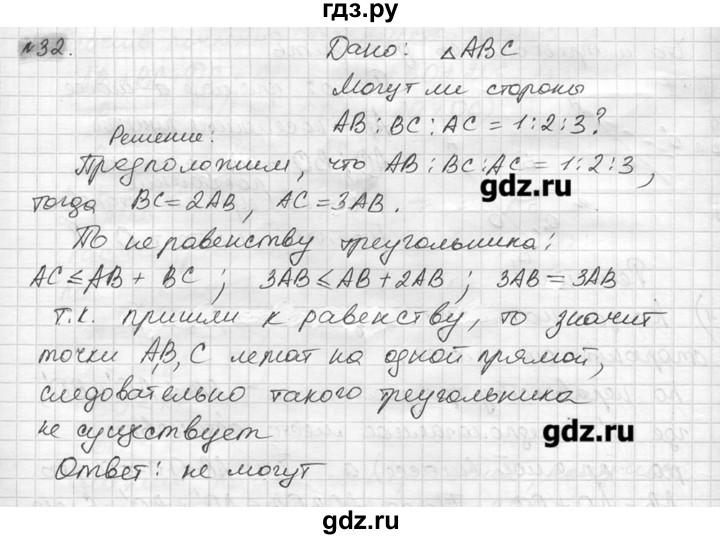 гдз.ру
№32.
Дано: △ABC
Могут ли стороны
AB:BC:AC=1:2:3?
Решение:
Предположим, что AB:BC:AC=1:2:3,
gdz.ru
тогда BC=2AB, AC=3AB.
По неравенству треугольника:
AC≤AB+BC; 3AB≤AB+2AB; 3AB=3AB
т.к. пришли к равенству, то значит
точки A,B,C лежат на одной прямой,
следовательно такого треугольника
не существует
gdz.ru
Ответ: не могут
gdz.ru